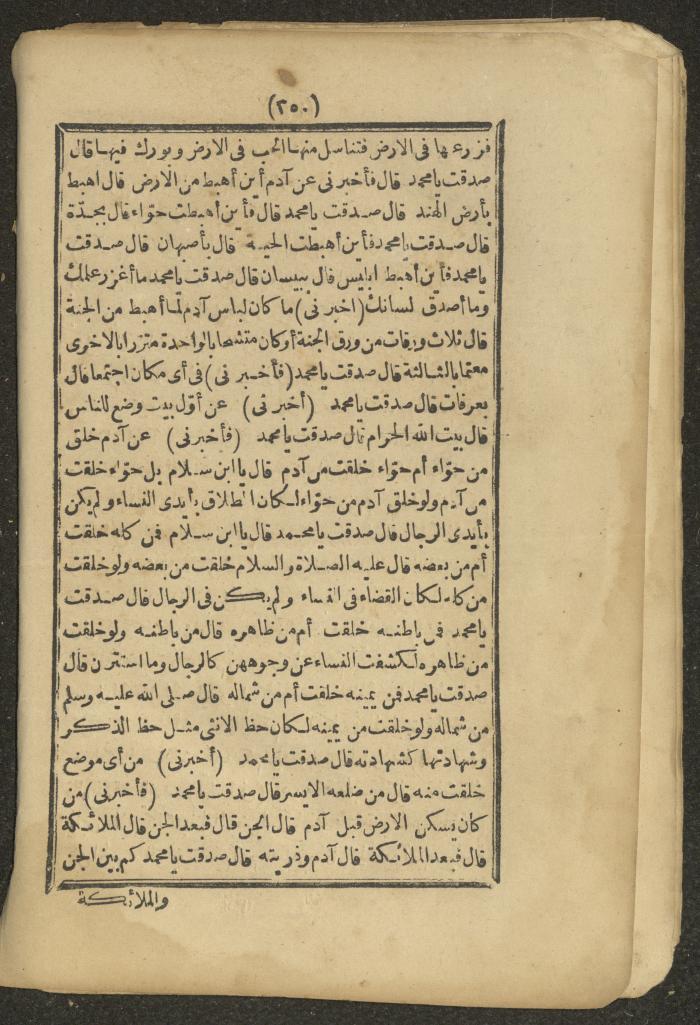 (٢٥٠)
فزرعها فى الارض فتناسل منها الحب فى الارض وبورك فيها قال
صدقت يا محمد قال فأخبرنى عن آدم أين أهبط من الارض قال اهبط
بأرض الهند قال صدقت يا محمد قال فأين أهبطت حوّاء قال بجدّة
قال صدقت يا محمد فأين أهبطت الحية قال بأصبهان قال صدقت
يا محمد فأين أهبط ابليس قال ببيسان قال صدقت يا محمد ما أغزر علمك
وما أصدق لسانك (اخبرنى) ما كان لباس آدم لمّا أهبط من الجنة
قال ثلاث ورقات من ورق الجنة أو كان متشحا بالواحدة متزرا بالاخرى
معتما بالثالثة قال صدقت يا محمد (فأخبرنى) فى أى مكان اجتمعا قال
بعرفات قال صدقت يا محمد (أخبرنى) عن أوّل بيت وضع للناس
قال بيت الله الحرام قال صدقت يا محمد (فأخبرنى) عن آدم خلق
من حوّاء أم حوّاء خلقت من آدم قال يا ابن سلام بل حوّاء خلقت
من آدم ولو خلق آدم من حوّاء لكان الطلاق بأيدى النساء ولم يكن
بأيدى الرجال قال صدقت يا محمد قال يا ابن سلام فمن كله خلقت
أم من بعضه قال عليه الصلاة والسلام خلقت من بعضه ولو خلقت
من كله لكان القضاء فى النساء ولم يكن فى الرجال قال صدقت
يا محمد فمن باطنه خلقت أم من ظاهره قال من باطنه ولو خلقت
من ظاهره لكشفت النساء عن وجوههن كالرجال وما استترن قال
صدقت يا محمد فمن يمينه خلقت أم من شماله قال صلى الله عليه وسلم
من شماله ولو خلقت من يمينه لكان حظ الانثى مثل حظ الذكر
وشهادتها كشهادته قال صدقت يا محمد (أخبرنى) من أى موضع
خلقت منه قال من ضلعه الايسر قال صدقت يا محمد (فأخبرنى) من
كان يسكن الارض قبل آدم قال الجن قال فبعد الجن قال الملائكة
قال فبعد الملائكة قال آدم وذريته قال صدقت يا محمد كم بين الجن
والملائكة